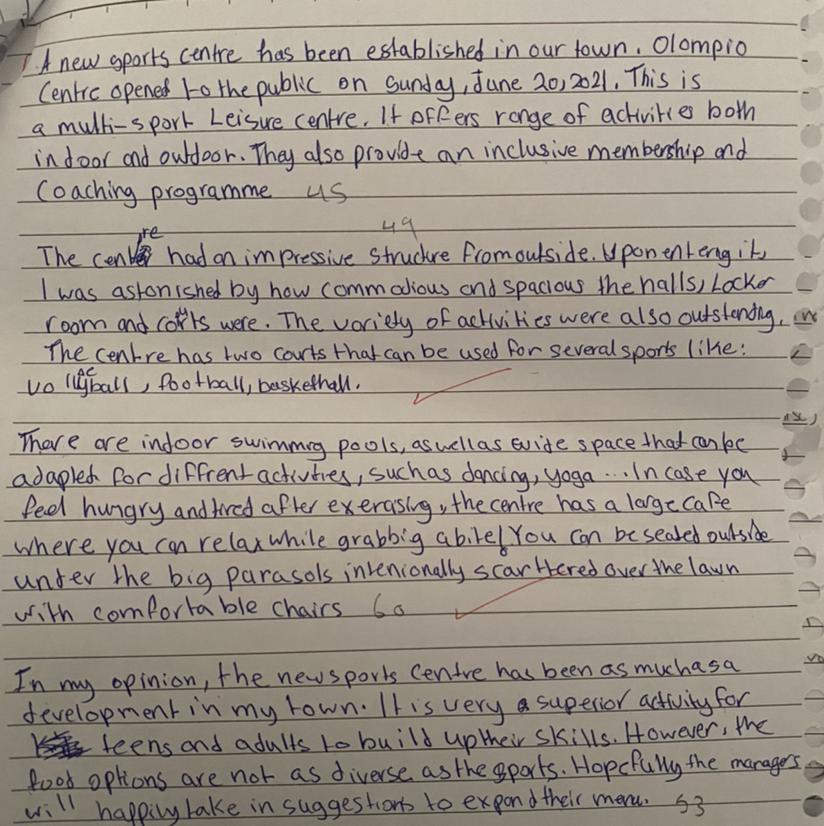 A new sports centre has been established in our town. Olompio
Centre opened to the public on Sunday, June 20, 2021. This is
a multi-sport Leisure centre. It offers range of activities both
indoor and outdoor. They also provide an inclusive membership and
Coaching programme 45
49
The centre had an impressive structure from outside. Upon enteng it,
I was astonished by how commodious and spacious the halls, Locker
room and courts were. The variety of activities were also outstanding,
The centre has two courts that can be used for several sports like:
volleyball, football, basketball.
There are indoor swimming pools, as well as wide space that can be
adapted for diffrent activities, such as dancing, yoga ... In case you
feel hungry and tired after exerasing, the centre has a large cafe
where you can relax while grabbig a bite! You can be seated outside
under the big parasols intenionally scarttered over the lawn
with comfortable chairs 60
In my opinion, the new sports centre has been as much as a
development in my town. It is very a superior activity for
teens and adults to build up their skills. However, the
food options are not as diverse as the sports. Hopefully the managers
will happily take in suggestions to expand their menu. 53